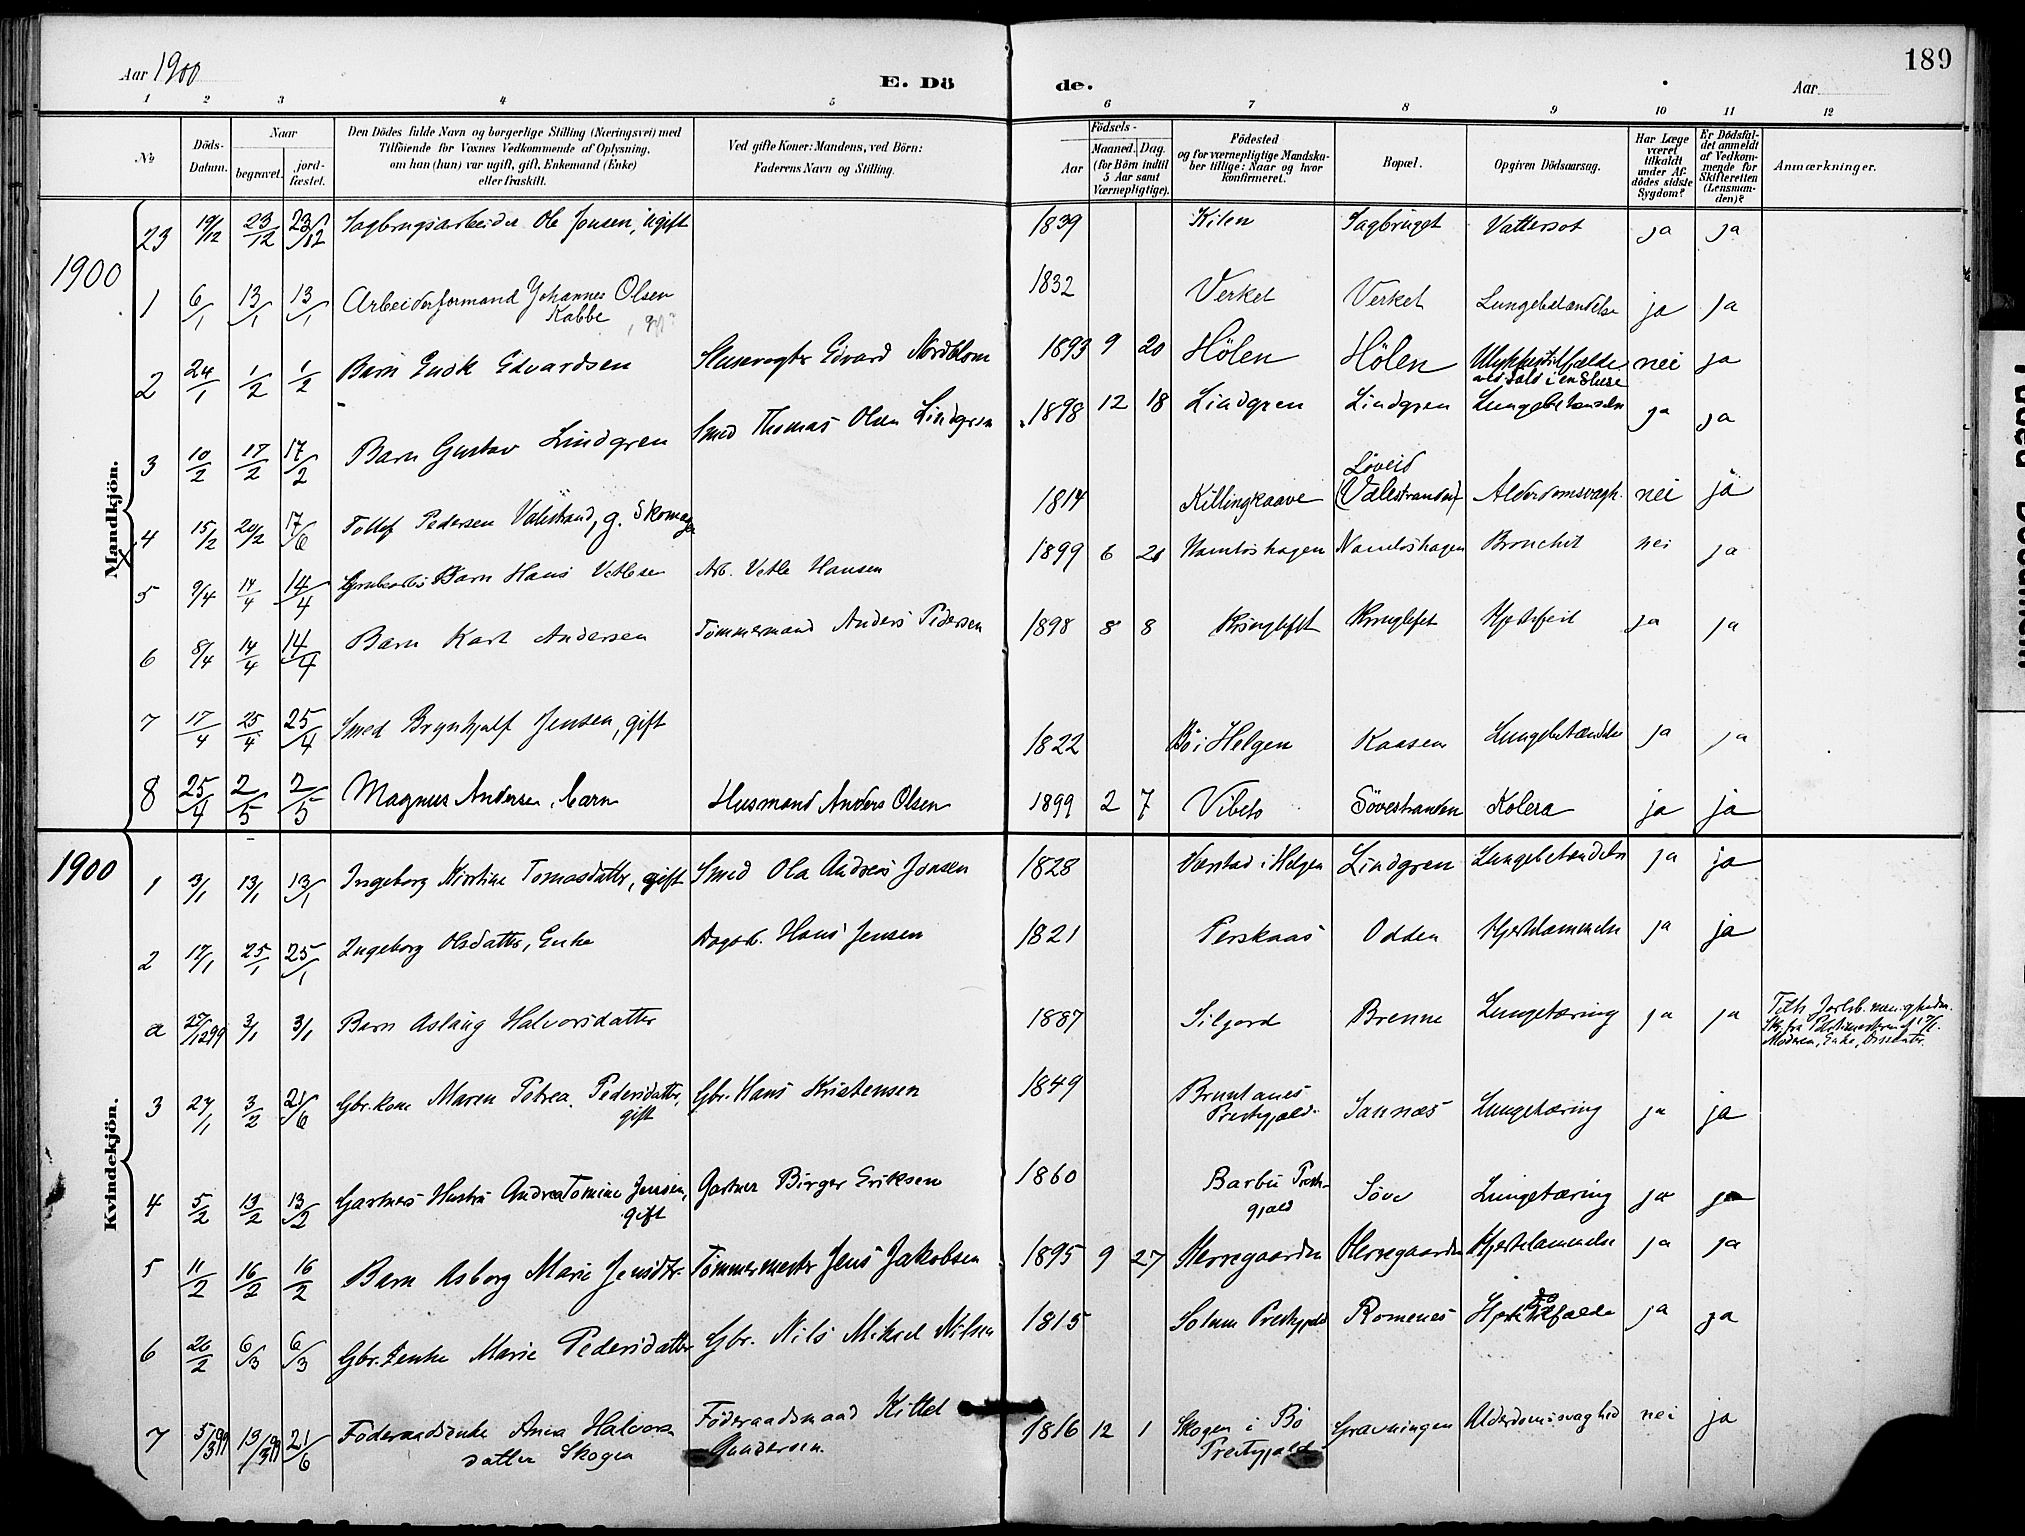 Aar 1900
E. Dö
de.
Aar
189
1 2 3 4 5 6 7 8 9 10 11 12
No
Döds-
Datum.
Naar
begravet.
jord-
fæstet.
Den Dödes fulde Navn og borgerlige Stilling (Næringsvei) med
Tilföiende for Voxnes Vedkommende af Oplysning,
om han (hun) var ugift, gift, Enkemand (Enke)
eller fraskilt.
Ved gifte Koner: Mandens, ved Börn:
Faderens Navn og Stilling.
Födsels-
Aar
Maaned. Dag.
(for Börn indtil
5 Aar samt
Værnepligtige).
Födested
og for værnepligtige Mandska-
ber tillige: Naar og hvor
konfirmeret.
Bopæl.
Opgiven Dödsaarsag.
Har Læge
været
tilkaldt
under Af-
dödes sidste
Sygdom?
Er Dödsfal-
det anmeldt
af Vedkom-
mende for
Skifteretten
(Lensman-
den)?
Anmærkninger.
Mandkjön.
23 19/12 23/12 23/12 Sagbrugsarbeider Ole Jensen, ugift 1839 Kilen Sagbruget Vattersot ja ja
1900
1 6/1 13/1 13/1 Arbeiderformand Johannes Olsen 1832 Verket Verket Lungebetændelse ja ja
Kabbe
2 24/1 1/2 1/2 Barn Edvardsen Slusevogter Edvard Nordblom 1893 9 20 Hölen Hölen Ulykkestilfælde nei ja
ved Fald i en Sluse
3 10/2 17/2 17/2 Barn Gustav Lindgren Smed Thomas Olsen Lindgren 1898 12 18 Lindgren Lindgren Lungebetændelse ja ja
4 15/2 20/2 17/6 Tollef Pedersen Valestrand, g. Skomager 1814 Killingkaave Löveid nei ja
(Valestranden) Alderdomsvagh.
5 9/4 14/4 14/4 Barn Hans Vetlesen Arb. Vetle Hansen 1899 6 Namlöshagen Namlöshagen Bronchit nei ja
6 8/4 14/4 14/4 Barn Karl Andersen Tömmermand Anders Pedersen 1898 8 8 Kringlefet Kringlefet Hjertefeil ja ja
7 17/4 25/4 25/4 Smed Brynhjulf Jensen, gift 1822 Bö i Helgen Kaasen Lungebetændelse ja ja
8 25/4 2/5 2/5 Magnus Andersen, barn Husmand Anders Olsen 1899 2 7 Vibeto Sövestranden Kolera ja ja
Kvindekjön.
1900
1 3/1 13/1 13/1 Ingeborg Kirstine Tomasdatter, gift Smed Ola Andreas Jensen 1828 i Helgen Lindgren Lungebetændelse ja ja
2 17/1 25/1 25/1 Ingeborg Olsdatter, Enke Dagarb. Hans Jensen 1821 Perskaas Odden Hjertelammelse ja ja
a 27/12 99 3/1 3/1 Barn Aslaug Halvorsdatter 1887 Siljord Brenne Lungetæring ja ja
Moderen, Enke, Dissenter.
3 27/1 3/2 21/6 Gbr.kone Maren Petrea Pedersdatter, gift Gbr. Hans Kristensen 1849 Brunlanes Prestegjæld Sannæs Lungetæring ja ja
4 5/2 13/2 13/2 Gartners Hustru Andrea Tomine Jensen, gift Gartner Birger Eriksen 1860 Barbu Prest-
gjæld Söve Lungetæring ja ja
5 11/2 16/2 16/2 Barn Asborg Marie Jensdtr. Tömmermester Jens Jakobsen 1895 9 27 Herregaarden Herregaarden Hjertelammelse ja ja
6 26/2 6/3 6/3 Gbr.enke Marie Pedersdatter Gbr. Nils Mikael Nilsen 1815 Solum Prestgjæld Romenes ja ja
7 5/3 99 13/3 99 21/6 Föderaadsenke Anna Halvors- Föderaadsmand Kittel 1816 12 1 Skogen i Bö Gravningen Alderdomssvaghed nei ja
datter Skogen Gundersen Prestgjæld